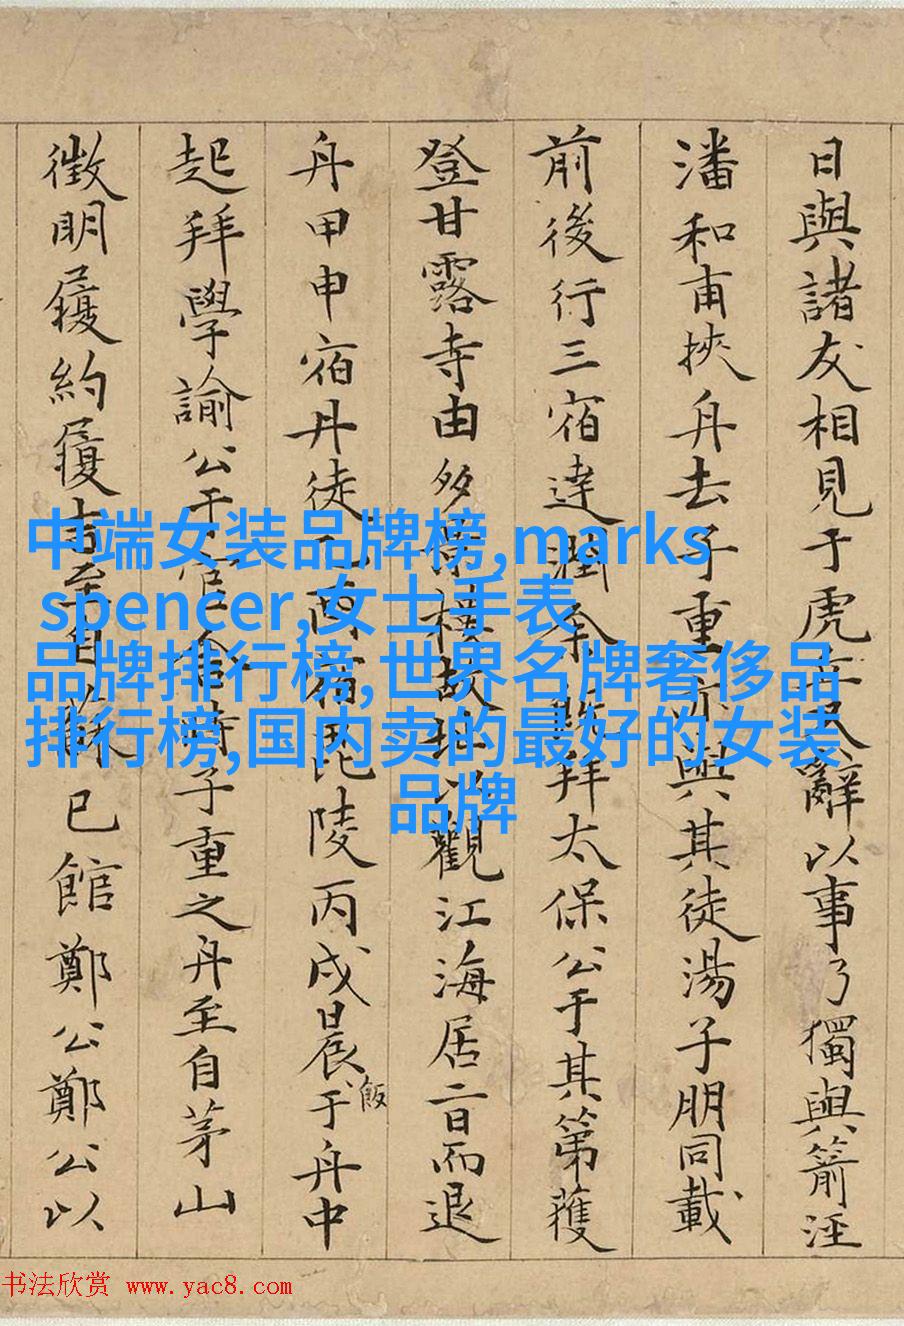 日與諸友相見于虎丘辭以事乃獨與箭涇
潘和甫挾舟去子重亦與其徒湯子朋同載
前後行三宿達潤拜太保公于其第獲
登甘露寺由多景樓故址以觀江海居二日而退
舟甲申宿丹徒宿毘陵丙戌晨飯于舟中
起拜學諭公于官舍時子重之舟至自茅山
徵明履約履吉至自蘇已館鄭公鄭公以
中端女装品牌榜,marks
spencer,女士手表
品牌排行榜,世界名牌奢侈品
排行榜,国内卖的最好的女装
品牌
书法欣赏 www.yac8.com